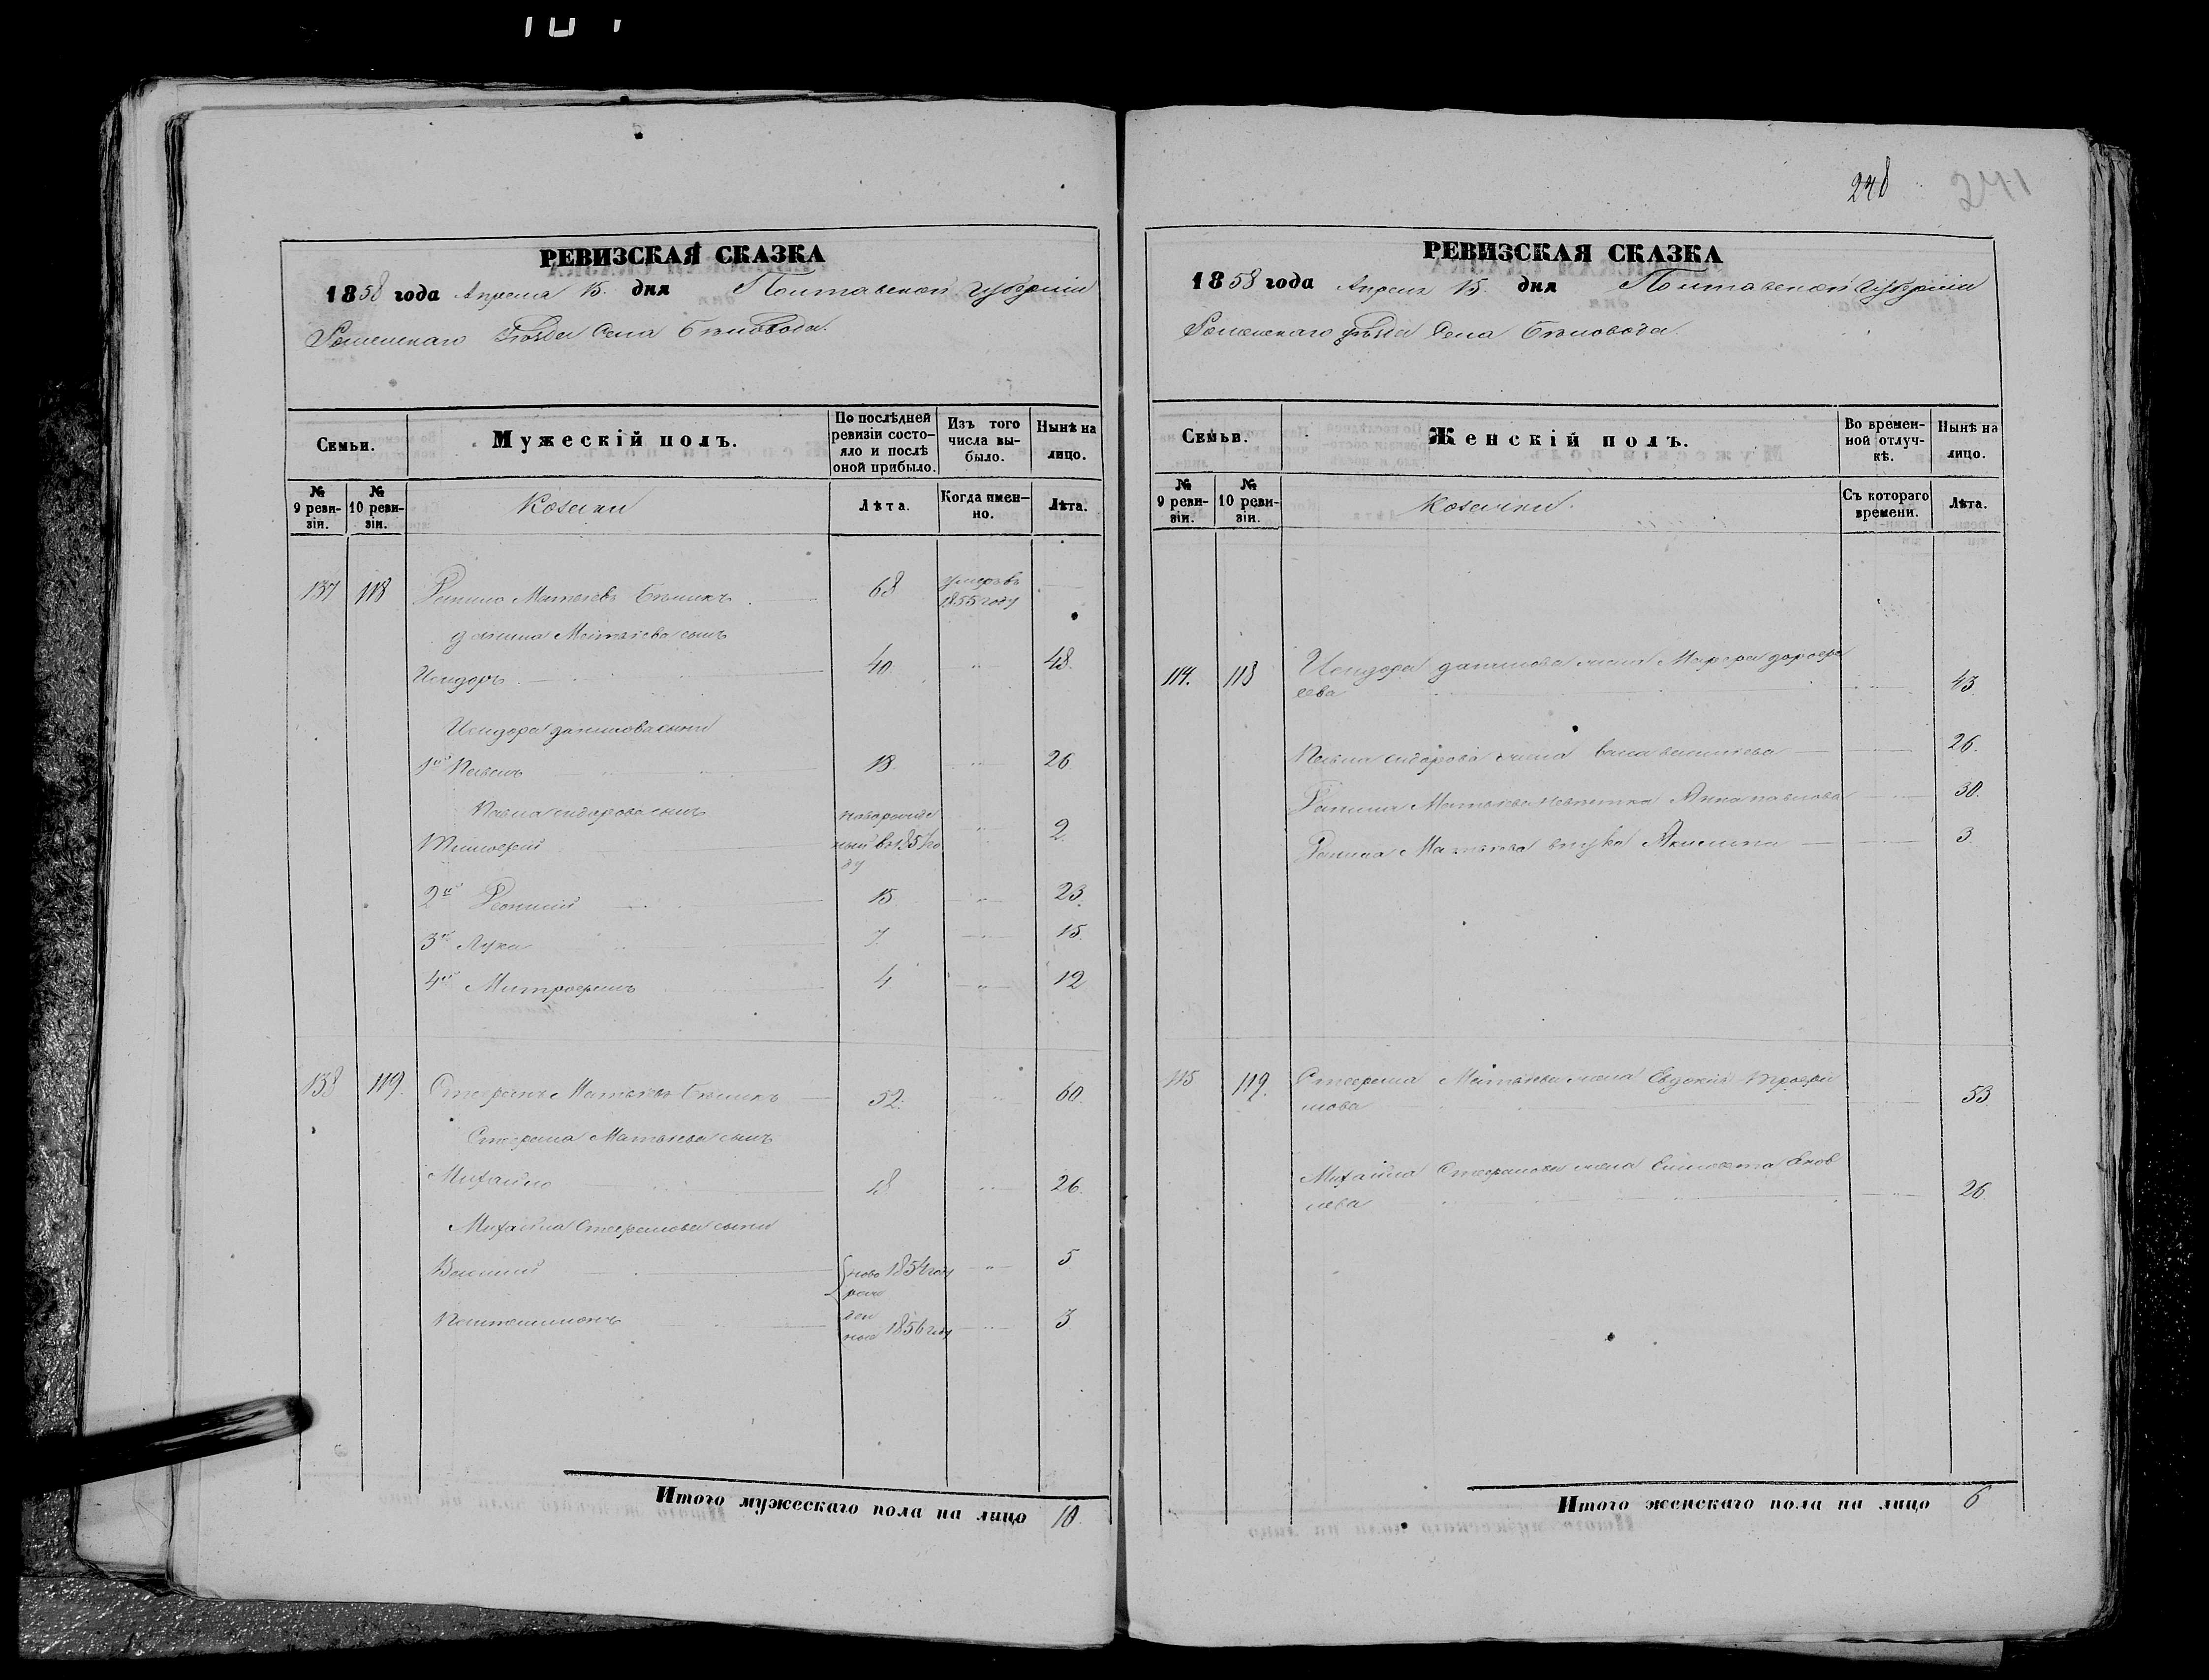 РЕВИЗСКАЯ СКАЗКА
1858 года Апреля 15. дня Полтавской Губерніи
Роменскаго Уѣзда Села Бѣловода.
Семьи.
Мужескій полъ.
По послѣдней ревизіи состояло и послѣ оной прибыло.
Изъ того числа выбыло.
Нынѣ на лицо.
№ 9 ревизіи.
№ 10 ревизіи.
Козаки
Лѣта.
Когда имянно.
Лѣта.
137 118 Данило Матвѣевъ Бѣликъ 68 умеръ въ 1855 году
Данила Матвѣева сынъ
Исидоръ 40 48
Исидора Данилова сыны
1й Павелъ 18 26
Павла Сидорова сынъ
Тимофей новорожденный во 1857 году 2
2й Леонтій 15 23
3й Лука 7 15
4й Митрофанъ 4 12
138 119. Стефанъ Матвѣевъ Бѣликъ 52 60
Стефана Матвѣева сынъ
Михайло 18 26
Михайла Стефанова сыны
Василий ново 1854 году 5
рож
Пантелимонъ ден 3
ные 1856 году
Итого мужескаго пола на лицо 10.
248 241
РЕВИЗСКАЯ СКАЗКА
1858 года Апреля 15. дня Полтавской Губерніи
Роменскаго уѣзда Села Бѣловода
Семьи.
Женскій полъ.
Во временной отлучкѣ.
Нынѣ на лицо.
№ 9 ревизіи.
№ 10 ревизіи.
Козачки.
Съ котораго времени.
Лѣта.
114. 118 Исидора Данилова жена Марфа Дорофе
ева 43
Павла Сидорова жена Васильева 26.
Данила Матвѣева невѣстка Анна Павлова 30.
Данила Матвѣева внука Акилина 3
115 119. Стефана Матвѣева жена Евдокія Трофи
мова 53
Михайла Стефанова жена Елисавета Яков
лева 26
Итого женскаго пола на лицо 6